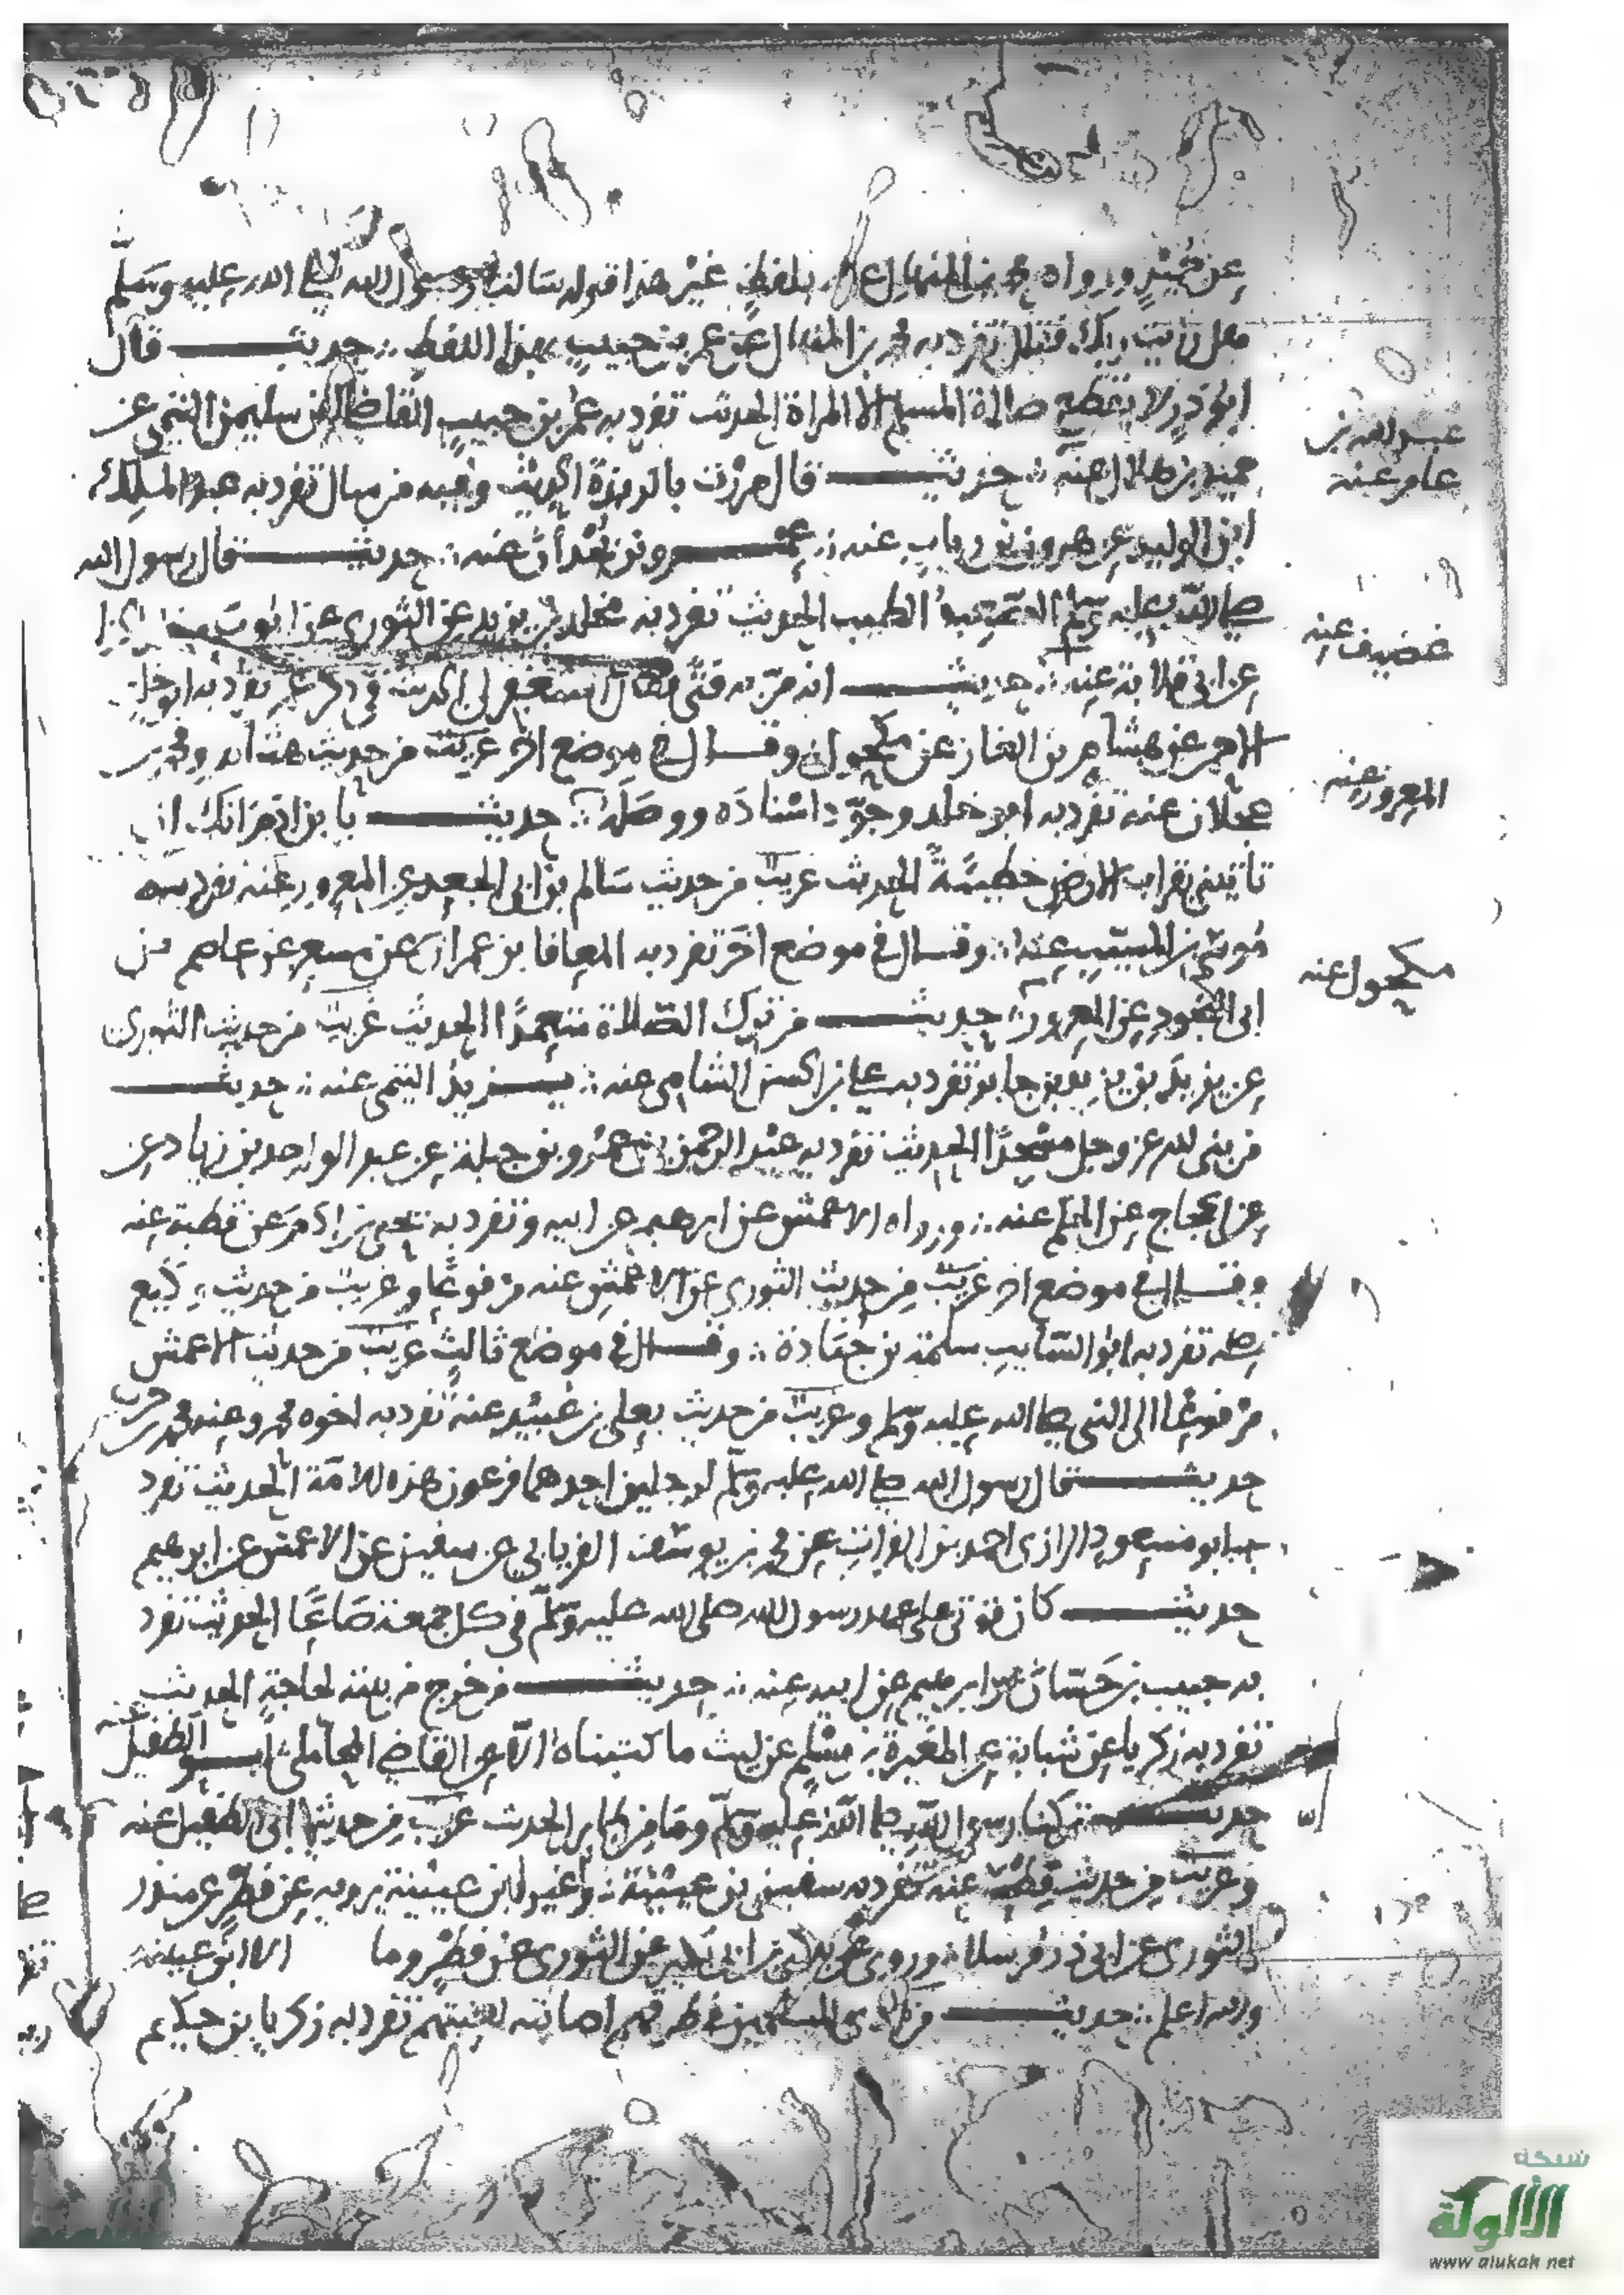 ورواه محمد بن المنهال بلفظ غير هذا قوله سالت رسول الله صلى الله عليه وسلم
هل رايت ربك تفرد به محمد بن المنهال عن عمر بن حبيب بهذا اللفظ حديث قال
ابو ذر لا يقطع صلاة المسلم الا المراة الحديث تفرد به عمر بن حبيب القاضي عن سليمن التيمي عن
عبد الله بن
حميد بن هلال عنه حديث قال مررت بالربذة الحديث وفيه تفرد به عبد الملك
عامر عنه
ابن الوليد عن هرون بن رياب عنه عمرو بن بجدان عنه حديث قال رسول الله
صلى الله عليه وسلم الصعيد الطيب الحديث تفرد به مخلد بن يزيد عن الثوري عن ايوب
غضيف عنه
عن ابي قلابة عنه حديث انه مر به فتى فقال استغفر لي الحديث في ذكر عمر تفرد به ابو خلد
الاحمر عن هشام بن الغاز عن مكحول وقال في موضع اخر غريب من حديث هشام ومحمد بن
المعرور عنه
عجلان عنه تفرد به ابو خلد وجود اسناده ووصله حديث يا بن ادم انك ان
تاتيني بقراب الارض خطيئة الحديث غريب من حديث سالم بن ابي الجعد عن المعرور عنه تفرد به
المسيب عنه وقال في موضع اخر تفرد به المعافا بن عمران عن مسعر عن عاصم بن
مكحول عنه
ابي النجود عن المعرور حديث من ترك الصلاة متعمدا الحديث غريب من حديث الثوري
عن يزيد بن يزيد بن جابر تفرد به علي بن الحسن الشامي عنه يزيد التيمي عنه حديث
من بنى لله عز وجل مسجدا الحديث تفرد به عبد الرحمن بن عمرو بن جبلة عن عبد الواحد بن زياد عن
عن الحجاج عن الحكم عنه ورواه الاعمش عن ابرهيم عن ابيه وتفرد به يحيى بن ادم عن قطبة عنه
وقال في موضع اخر غريب من حديث الثوري عن الاعمش عنه مرفوعا وغريب من حديث وكيع
تفرد به ابو السايب سلمة بن جنادة وقال في موضع ثالث غريب من حديث الاعمش
مرفوعا الى النبي صلى الله عليه وسلم وغريب من حديث يعلى بن عبيد عنه تفرد به اخوه محمد وعنه محمد بن حرب
حديث قال رسول الله صلى الله عليه وسلم لرجلين احدهما فرعون هذه الامة الحديث تفرد
به ابو مسعود الرازي احمد بن الفرات عن محمد بن يوسف الفريابي عن سفين عن الاعمش عن ابرهيم
حديث كان قوتي على عهد رسول الله صلى الله عليه وسلم في كل جمعة صاعا الحديث تفرد
به حبيب بن حسان عن ابرهيم عن ابيه عنه حديث من خرج من بيته لحاجة الحديث
تفرد به زكريا عن شبابة عن المغيرة بن مسلم عن ليث ما كتبناه الا عن القاضي المحاملي ابو الطفيل عنه
حديث تركنا رسول الله صلى الله عليه وسلم وما من طاير الحديث غريب من حديث ابي الطفيل عنه
وغريب من حديث فطر عنه تفرد به سفين بن عيينة وغير ابن عيينة يرويه عن فطر عن منذر
الثوري عن ابي ذر مرسلا وروي عن الثوري عن فطر وما الا ابن عيينة
والله اعلم حديث من اذى المسلمين في طرقهم اصابته لعنتهم تفرد به زكريا بن حكيم
شبكة
الألوكة
www alukah net